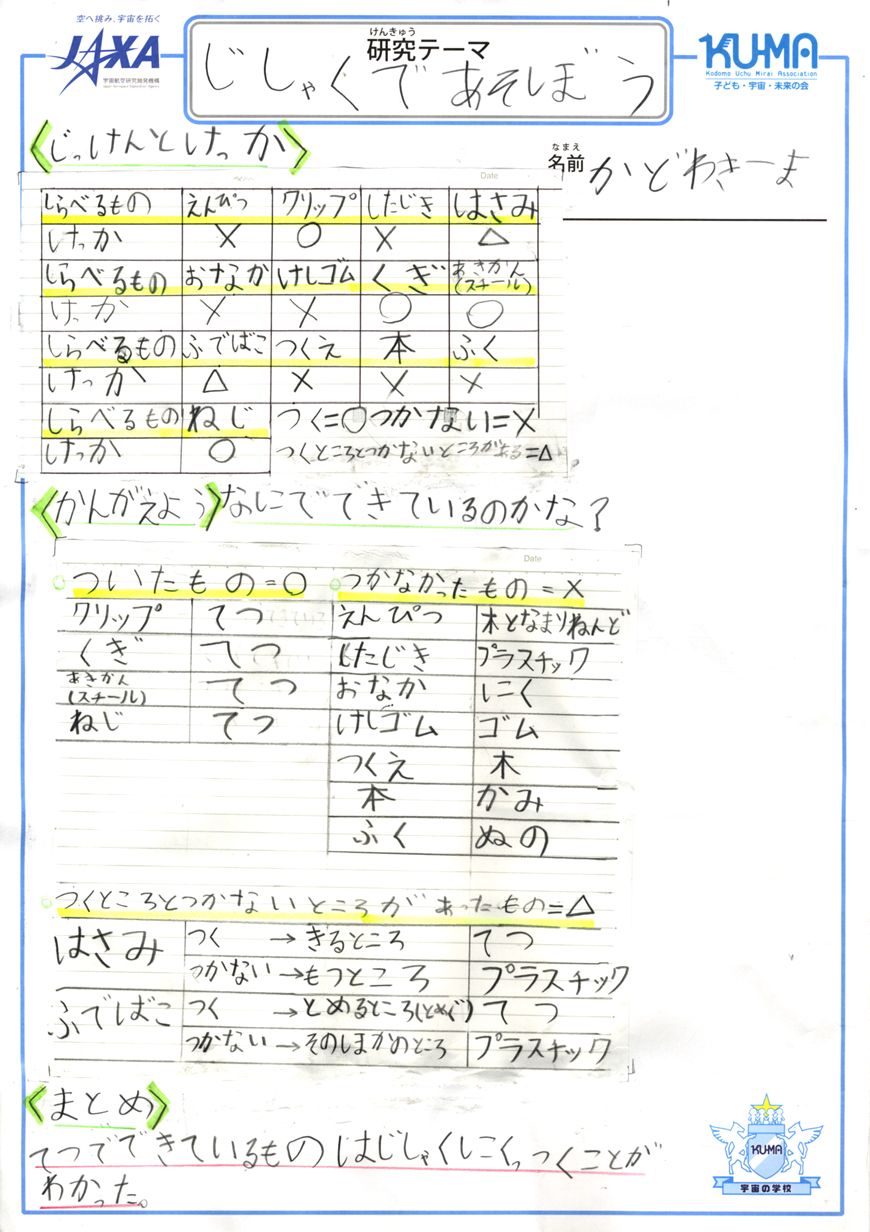 空へ挑み、宇宙を拓く
JAXA
宇宙航空研究開発機構
Japan Aerospace Exploration Agency
けんきゅう
研究テーマ
じしゃくであそぼう
KU-MA
Kodomo Uchu Mirai Association
子ども・宇宙・未来の会
〈じっけんとけっか〉
なまえ
名前 かどわきーま
Date
しらべるもの えんぴつ クリップ したじき はさみ
けっか × ○ × △
しらべるもの おなか けしゴム くぎ あきかん(スチール)
けっか × × ○ ○
しらべるもの ふでばこ つくえ 本 ふく
けっか △ × × ×
しらべるもの ねじ つく=○つかない=×
けっか ○ つくところとつかないところがある=△
〈かんがえよう〉なにでできているのかな?
Date
ついたもの=○ つかなかったもの=×
クリップ てつ えんぴつ 木となまりねんど
くぎ てつ したじき プラスチック
あきかん(スチール) てつ おなか にく
ねじ てつ けしゴム ゴム
つくえ 木
本 かみ
ふく ぬの
つくところとつかないところがあったもの=△
はさみ つく →きるところ てつ
つかない→もつところ プラスチック
ふでばこ つく →とめるところ(とめぐ) てつ
つかない→そのほかのところ プラスチック
〈まとめ〉
てつでできているものはじしゃくにくっつくことが
わかった。
KU-MA
宇宙の学校